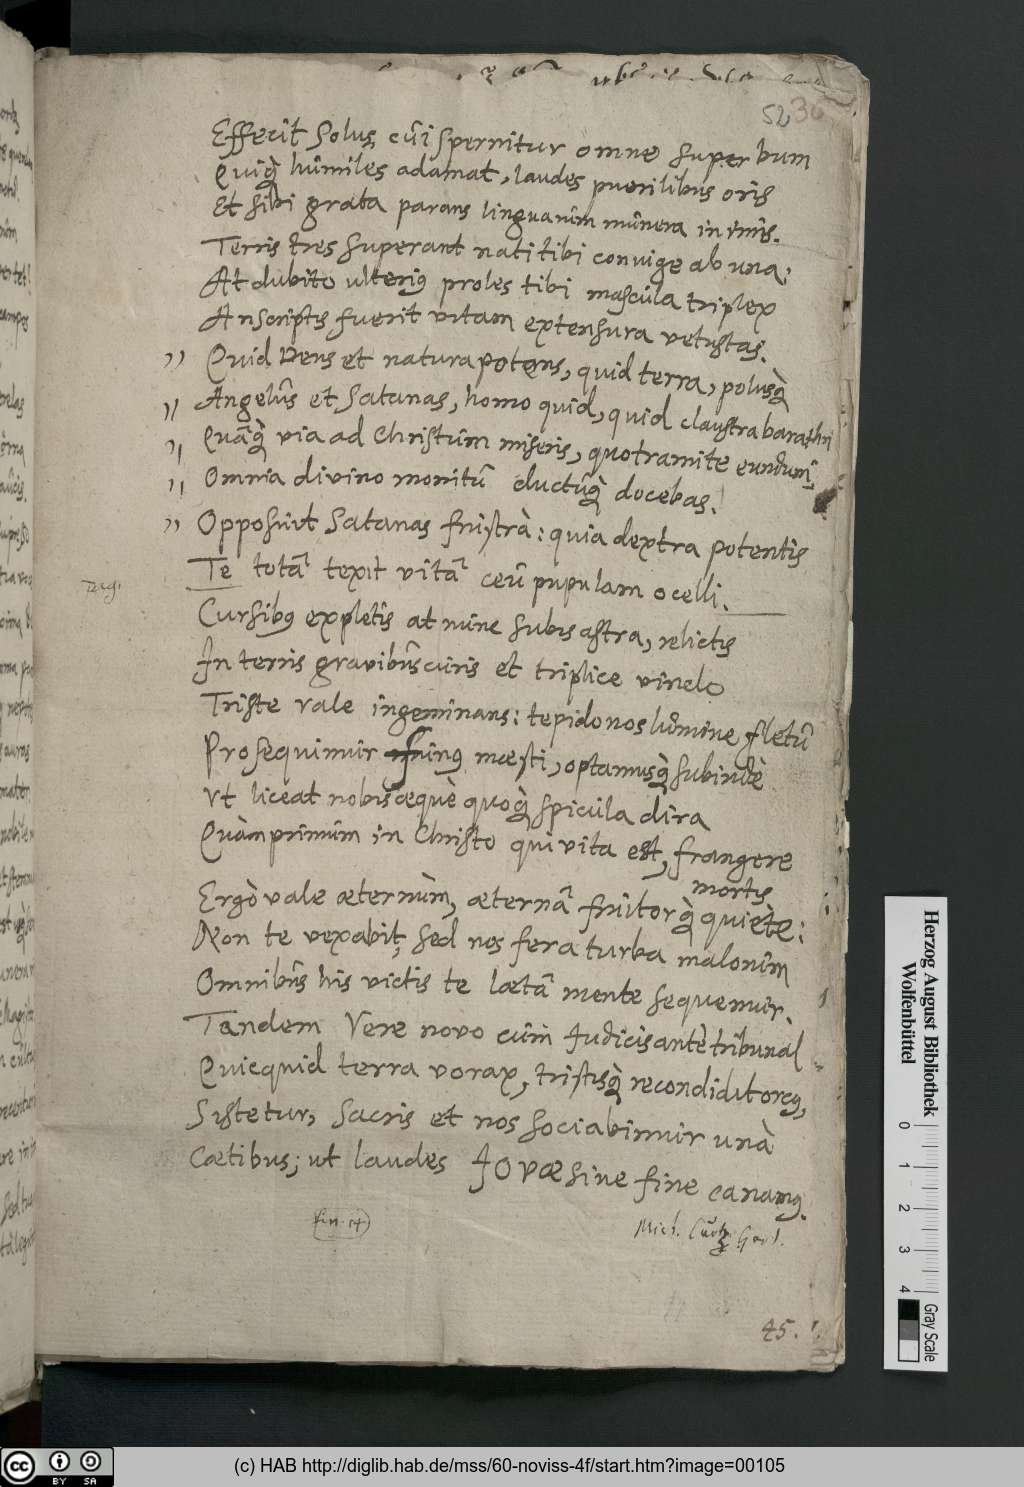 52 36
Effecit Solus, cûi spernitur omne superbum
Quiq̀ hûmiles adamat, laudes puerilibus oris
Et sibi grata parans linguarûm mûnera inimis.
Terris tres superant nati tibi coniuge ab una,
At dubito ulteriꝰ proles tibi mascûla triplex
An scriptis fuerit vitam extensura vetustas.
,, Quid Deus et natura potens, quid terra, polusq̀
,, Angelûs et Satanas, homo quid, quid claustra barathri
,, Quâq̀ via ad Christûm miseris, quo tramite eundum,
,, Omnia divino monitû ductûq̀ docebas.
,, Opposuit Satanas frustrà: quia dextra potentis
Te totâ texit vitâ ceû pupulam ocelli.
Cursibꝰ expletis at nunc subis astra, relictis
In terris gravibûs cûris et triplice vinclo
Triste vale ingeminans: tepido nos lûmine fletû
Prosequimur funꝰ mœsti, optamusq̀ subindè
Ut liceat nobis æquè quoq̀ spicûla dira
Quàm primûm in Christo qui vita est, frangere
mortis
Ergò vale æternùm, æternâ fruitorq̀ quiète:
Non te vexabit, sed nos fera turba malorûm
Omnibûs his victis te lætâ mente sequemur.
Tandem Vere novo cûm Judicis antè tribunal
Quicquid terra vorax, tristisq̀ recondidit orcꝰ,
Sistetur, Sacris et nos sociabimur unà
Cœtibus; ut laudes JOVÆ sine fine canamꝰ.
Mich.
45.
Herzog August Bibliothek
Wolfenbüttel
0 1 2 3 4
Gray Scale
cc BY SA
(c) HAB http://diglib.hab.de/mss/60-noviss-4f/start.htm?image=00105